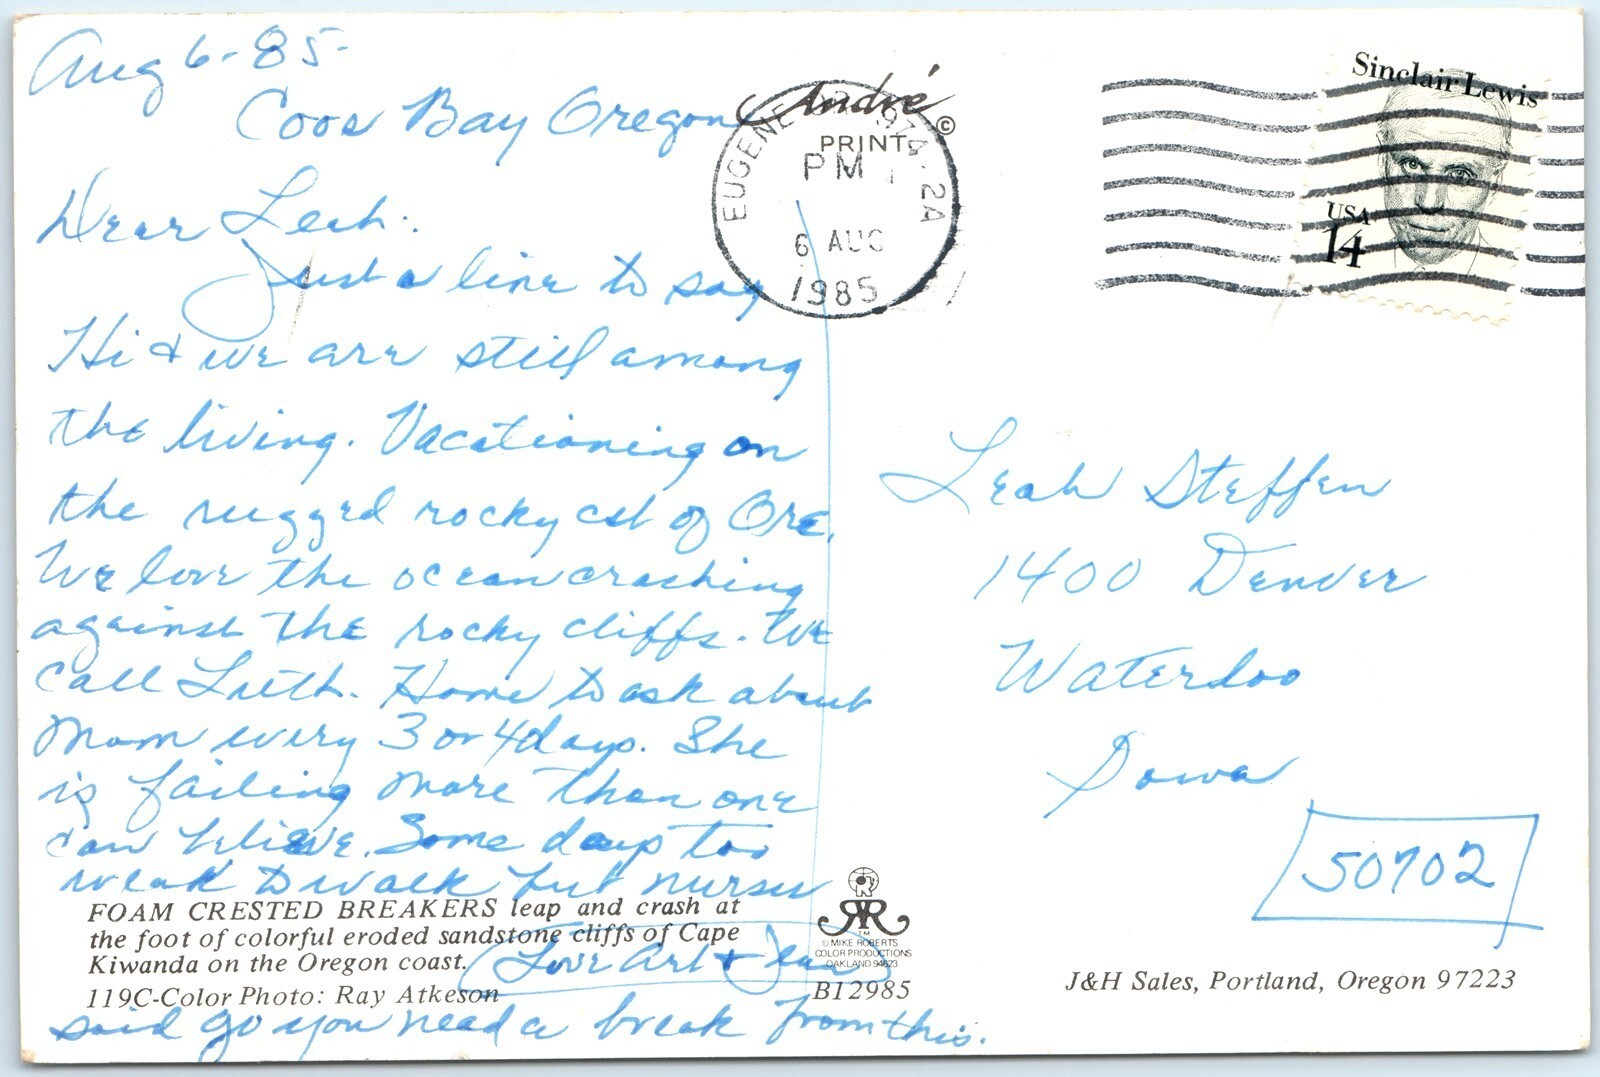 Aug 6-85-
Coos Bay Oregon
Dear Leah.
Just a line to say
Hi & we are still among
the living. Vacationing on
the rugged rocky cst of Ore.
We love the ocean crashing
against the rocky cliffs. We
call Luth. Home to ask about
Mom every 3 or 4 days. She
is failing more than one
can believe. Some days too
weak to walk but nurses
said go you need a break from this.
Love Art & Jean
FOAM CRESTED BREAKERS leap and crash at
the foot of colorful eroded sandstone cliffs of Cape
Kiwanda on the Oregon coast.
119C-Color Photo: Ray Atkeson
André ©
PRINT
EUGENE OR 974 2A
PM
6 AUG
1985
Sinclair Lewis
USA
14
Leah Steffen
1400 Denver
Waterloo
Iowa
50702
R
RR
TM
© MIKE ROBERTS
COLOR PRODUCTIONS
OAKLAND 94623
B12985
J&H Sales, Portland, Oregon 97223